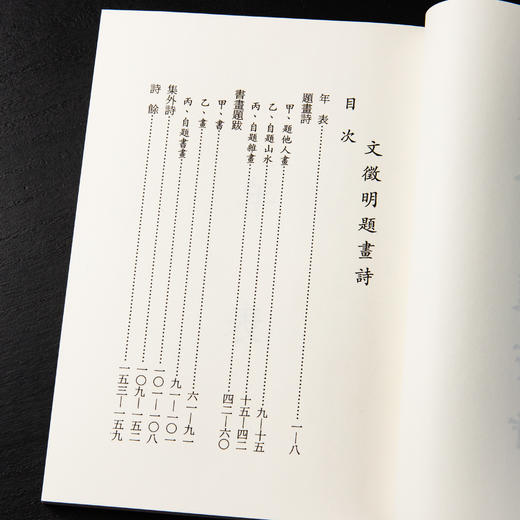 文徵明題畫詩
目次
年表……一—八
題畫詩
甲、題他人畫……九—十五
乙、自題山水……十五—四二
丙、自題雜畫……四二—六〇
書畫題跋
甲、書……六一—九一
乙、畫……九一—一〇一
丙、自題書畫……一〇一—一〇八
集外詩……一〇九—一五二
詩餘……一五三—一五九